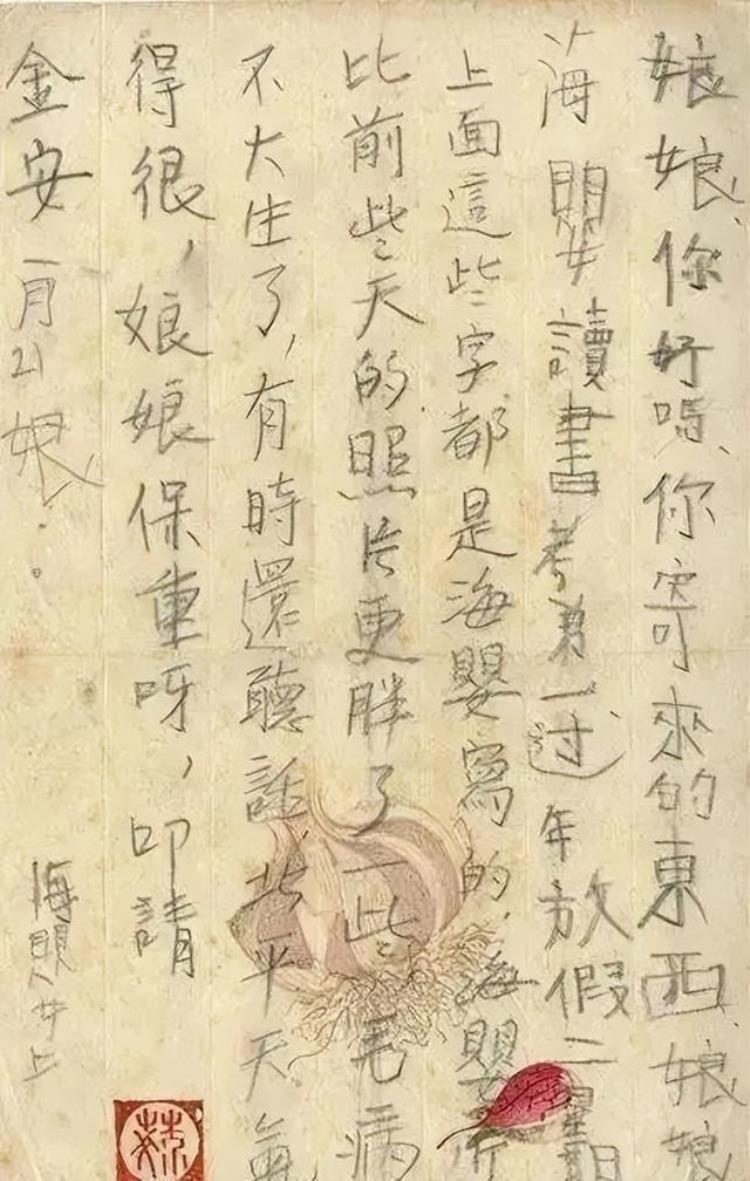 娘娘,你好嗎、你寄來的東西、娘娘
海嬰讀書考弟一,过年放假二星期
上面這些字都是海嬰寫的,海嬰
比前些天的照片更胖了一些,毛病
不大生了,有時還聽話,北平天氣
得很,娘娘保重呀,叩請
金安 一月21 娘
海嬰上